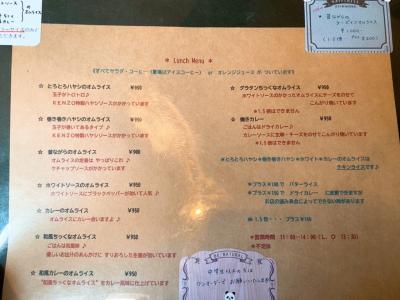 * Lunch Menu *
《すべてサラダ・コーヒー（夏場はアイスコーヒー） or オレンジジュース が ついています》
☆ とろとろハヤシのオムライス ¥950
玉子がトロトロ♪
KENZO特製ハヤシソースがかかっています
☆ 巻き巻きハヤシのオムライス ¥950
玉子が巻いてあるタイプ♪
KENZO特製ハヤシソースがかかっています
☆ 昔ながらのオムライス ¥950
オムライスの定番は やっぱりこれ♪
ケチャップソースがかかっています
☆ ホワイトソースのオムライス ¥950
ホワイトソースにブラックペッパーが効いて人気♪
☆ カレーのオムライス ¥950
オムライスにカレー合いますよ♪
☆ 和風ちっくなオムライス ¥950
ごはんは和風味♪
優しいお出汁のあんかけに すりおろした生姜が効いています
☆ 和風カレーのオムライス ¥950
"和風ちっくなオムライス"をカレー風味に仕上げています
☆ グラタンちっくなオムライス ¥950
ホワイトソースのかかったオムライスにチーズをのせて
こんがり焼いています
*1.5倍はできません
☆ 焼きカレー ¥950
ごはんはドライカレー♪
カレーソースに生卵・チーズをのせて こんがり焼いています
*1.5倍はできません
*とろとろハヤシ*巻き巻きハヤシ*ホワイト*カレーのオムライスは
チキンライスです*
*プラス¥100で バターライス
*プラス¥100で ドライカレー に変更できますが
お店の混み具合によってできない時があります
*1.5倍・・・ プラス¥150
*営業時間 11:00~14:00(L.O 13:30)
*不定休
BE NATURAL
中学生以上の方は
ワンオーダーで お願いいたします